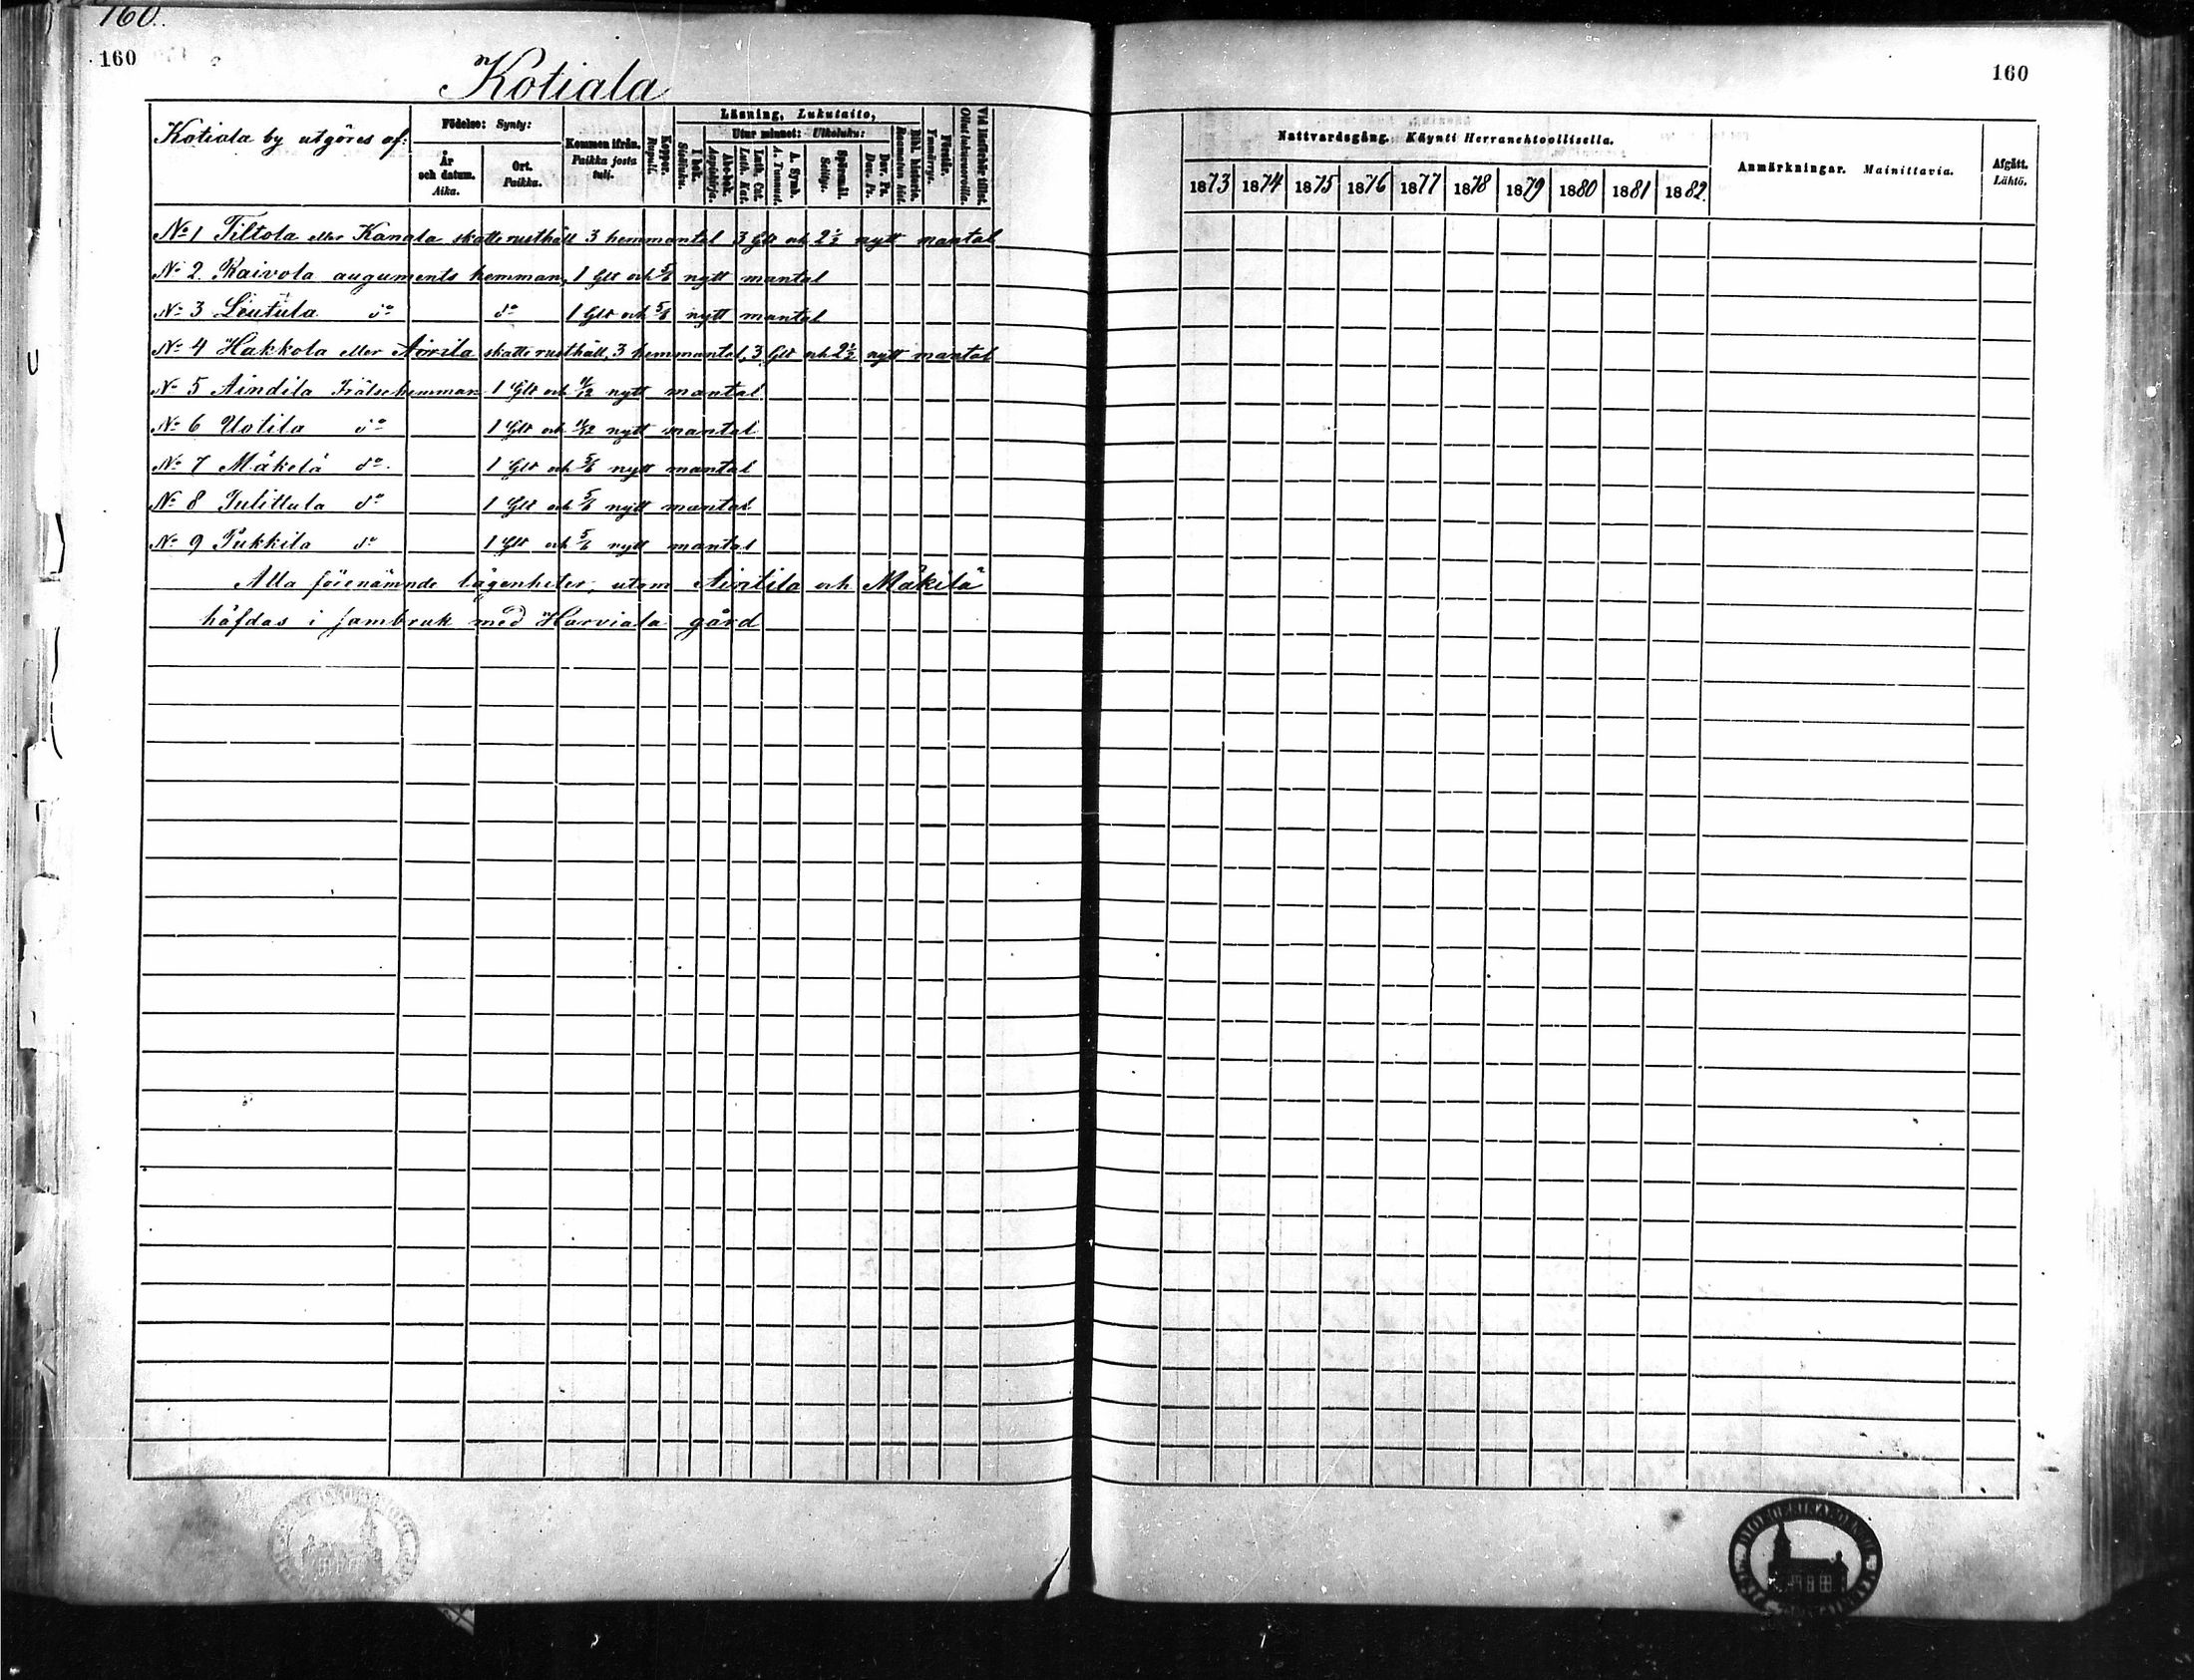 160.
160
Kotiala
Kotiala by utgöres af:
Födelse: Synty:
År och datum. Aika.
Ort. Paikka.
Kommen ifrån. Paikka josta tuli.
Koppor. Rupuli.
Läsning, Lukutaito,
I bok. Sisäluku.
Utur minnet: Ulkoluku:
Abc-bok. Aapiskirja.
Luth. Cat. Luth. Kat.
A. Symb. A. Tunnust.
Spörsmål. Selitys.
Dav. Ps. Dav. Ps.
Bibl. historia. Raamatun hist.
Förstår. Ymmärrys.
Vid läsförhör tillst. Ollut lukuvuoroilla.
No 1 Tiltola eller Kanala skatte rusthåll 3 hemmantal 3 Glt och 2½ nytt mantal
No 2. Kaivola auguments hemman, 1 Glt och 5/6 nytt mantal
No 3 Leutula do do 1 Glt och 5/6 nytt mantal
No 4 Hakkola eller Airila skatte rusthåll, 3 hemmantal, 3 Glt och 2½ nytt mantal
No 5 Aindila Frälsehemman 1 Glt och 11/12 nytt mantal
No 6 Uotila do 1 Glt och 11/12 nytt mantal
No 7 Mäkelä do. 1 Glt och 5/6 nytt mantal
No 8 Tulittula do 1 Glt och 5/6 nytt mantal
No 9 Pukkila do 1 Glt och 5/6 nytt mantal
Alla förenämnde lägenheter, utom och Mäkilä
häfdas i sambruk med Harviala gård
160
Nattvardsgång. Käynti Herranehtoollisella.
1873 1874 1875 1876 1877 1878 1879 1880 1881 1882.
Anmärkningar. Mainittavia.
Afgått. Lähtö.